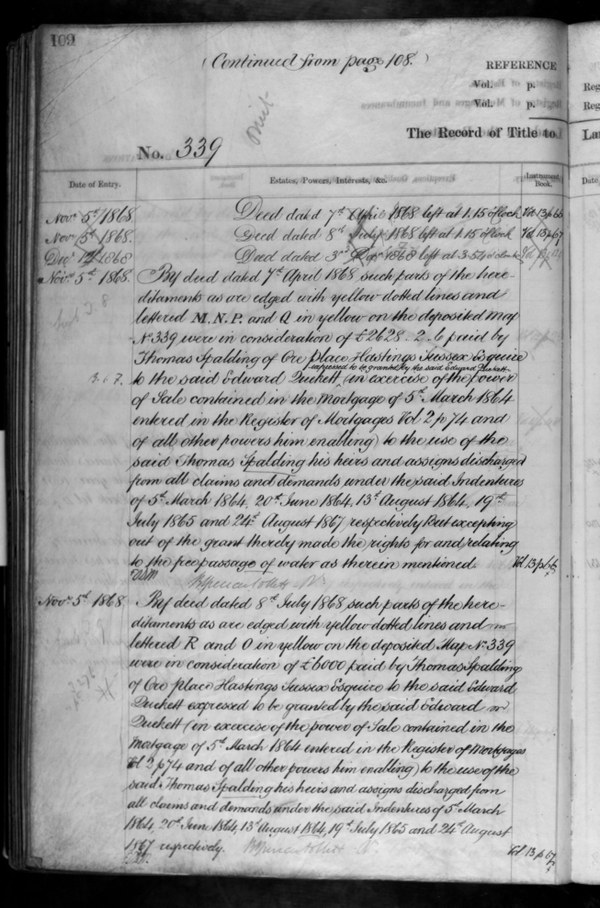 109
(Continued from page 108.)
REFERENCE
Vol. p.
Vol. p.
Reg
Reg
The Record of Title to
Lan
No. 339
Date of Entry.
Estates, Powers, Interests, &c.
Instrument Book.
Date
Novr 5th 1868. Deed dated 7th April 1868 left at 1.15 o'Clock Vol 13 p 66
Novr 5th 1868. Deed dated 8th July 1868 left at 1.15 o'Clock Vol 13 p 67
Decr 1868 Deed dated 3rd 1868 left at 3.54 o'clock
Novr 5th 1868. By deed dated 7th April 1868 such parts of the here-
ditaments as are edged with yellow dotted lines and
lettered M.N.P. and Q in yellow on the deposited Map
No 339 were in consideration of £2628. 2. 6 paid by
Thomas Spalding of Ore place Hastings Sussex Esquire
expressed to be granted by the said Edward Duckett
to the said Edward Duckett (in exercise of the power
of Sale contained in the Mortgage of 5th March 1864
entered in the Register of Mortgages Vol 2 p 74 and
of all other powers him enabling) to the use of the
said Thomas Spalding his heirs and assigns discharged
from all claims and demands under the said Indentures
of 5th March 1864, 20th June 1864, 13th August 1864, 19th
July 1865 and 24th August 1867 respectively But excepting
out of the grant thereby made the rights for and relating
to the free passage of water as therein mentioned Vol 13 p 66
Novr 5th 1868 By deed dated 8th July 1868 such parts of the here-
ditaments as are edged with yellow dotted lines and
lettered R and O in yellow on the deposited Map No 339
were in consideration of £6000 paid by Thomas Spalding
of Ore place Hastings Sussex Esquire to the said Edward
Duckett expressed to be granted by the said Edward
Duckett (in exercise of the power of Sale contained in the
Mortgage of 5th March 1864 entered in the Register of Mortgages
Vol 2 p 74 and of all other powers him enabling) to the use of the
said Thomas Spalding his heirs and assigns discharged from
all claims and demands under the said Indentures of 5th March
1864, 20th June 1864, 13th August 1864, 19th July 1865 and 24th August
1867 respectively. Vol 13 p 67